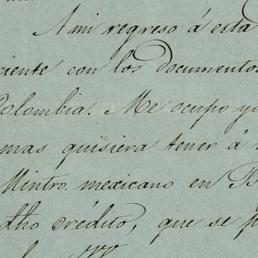 A mi regreso á esta
ciente con los documentos
Colombia. Me ocupo y
mas quisiera tener á
Mintro. mexicano en B
dho crédito, que se p